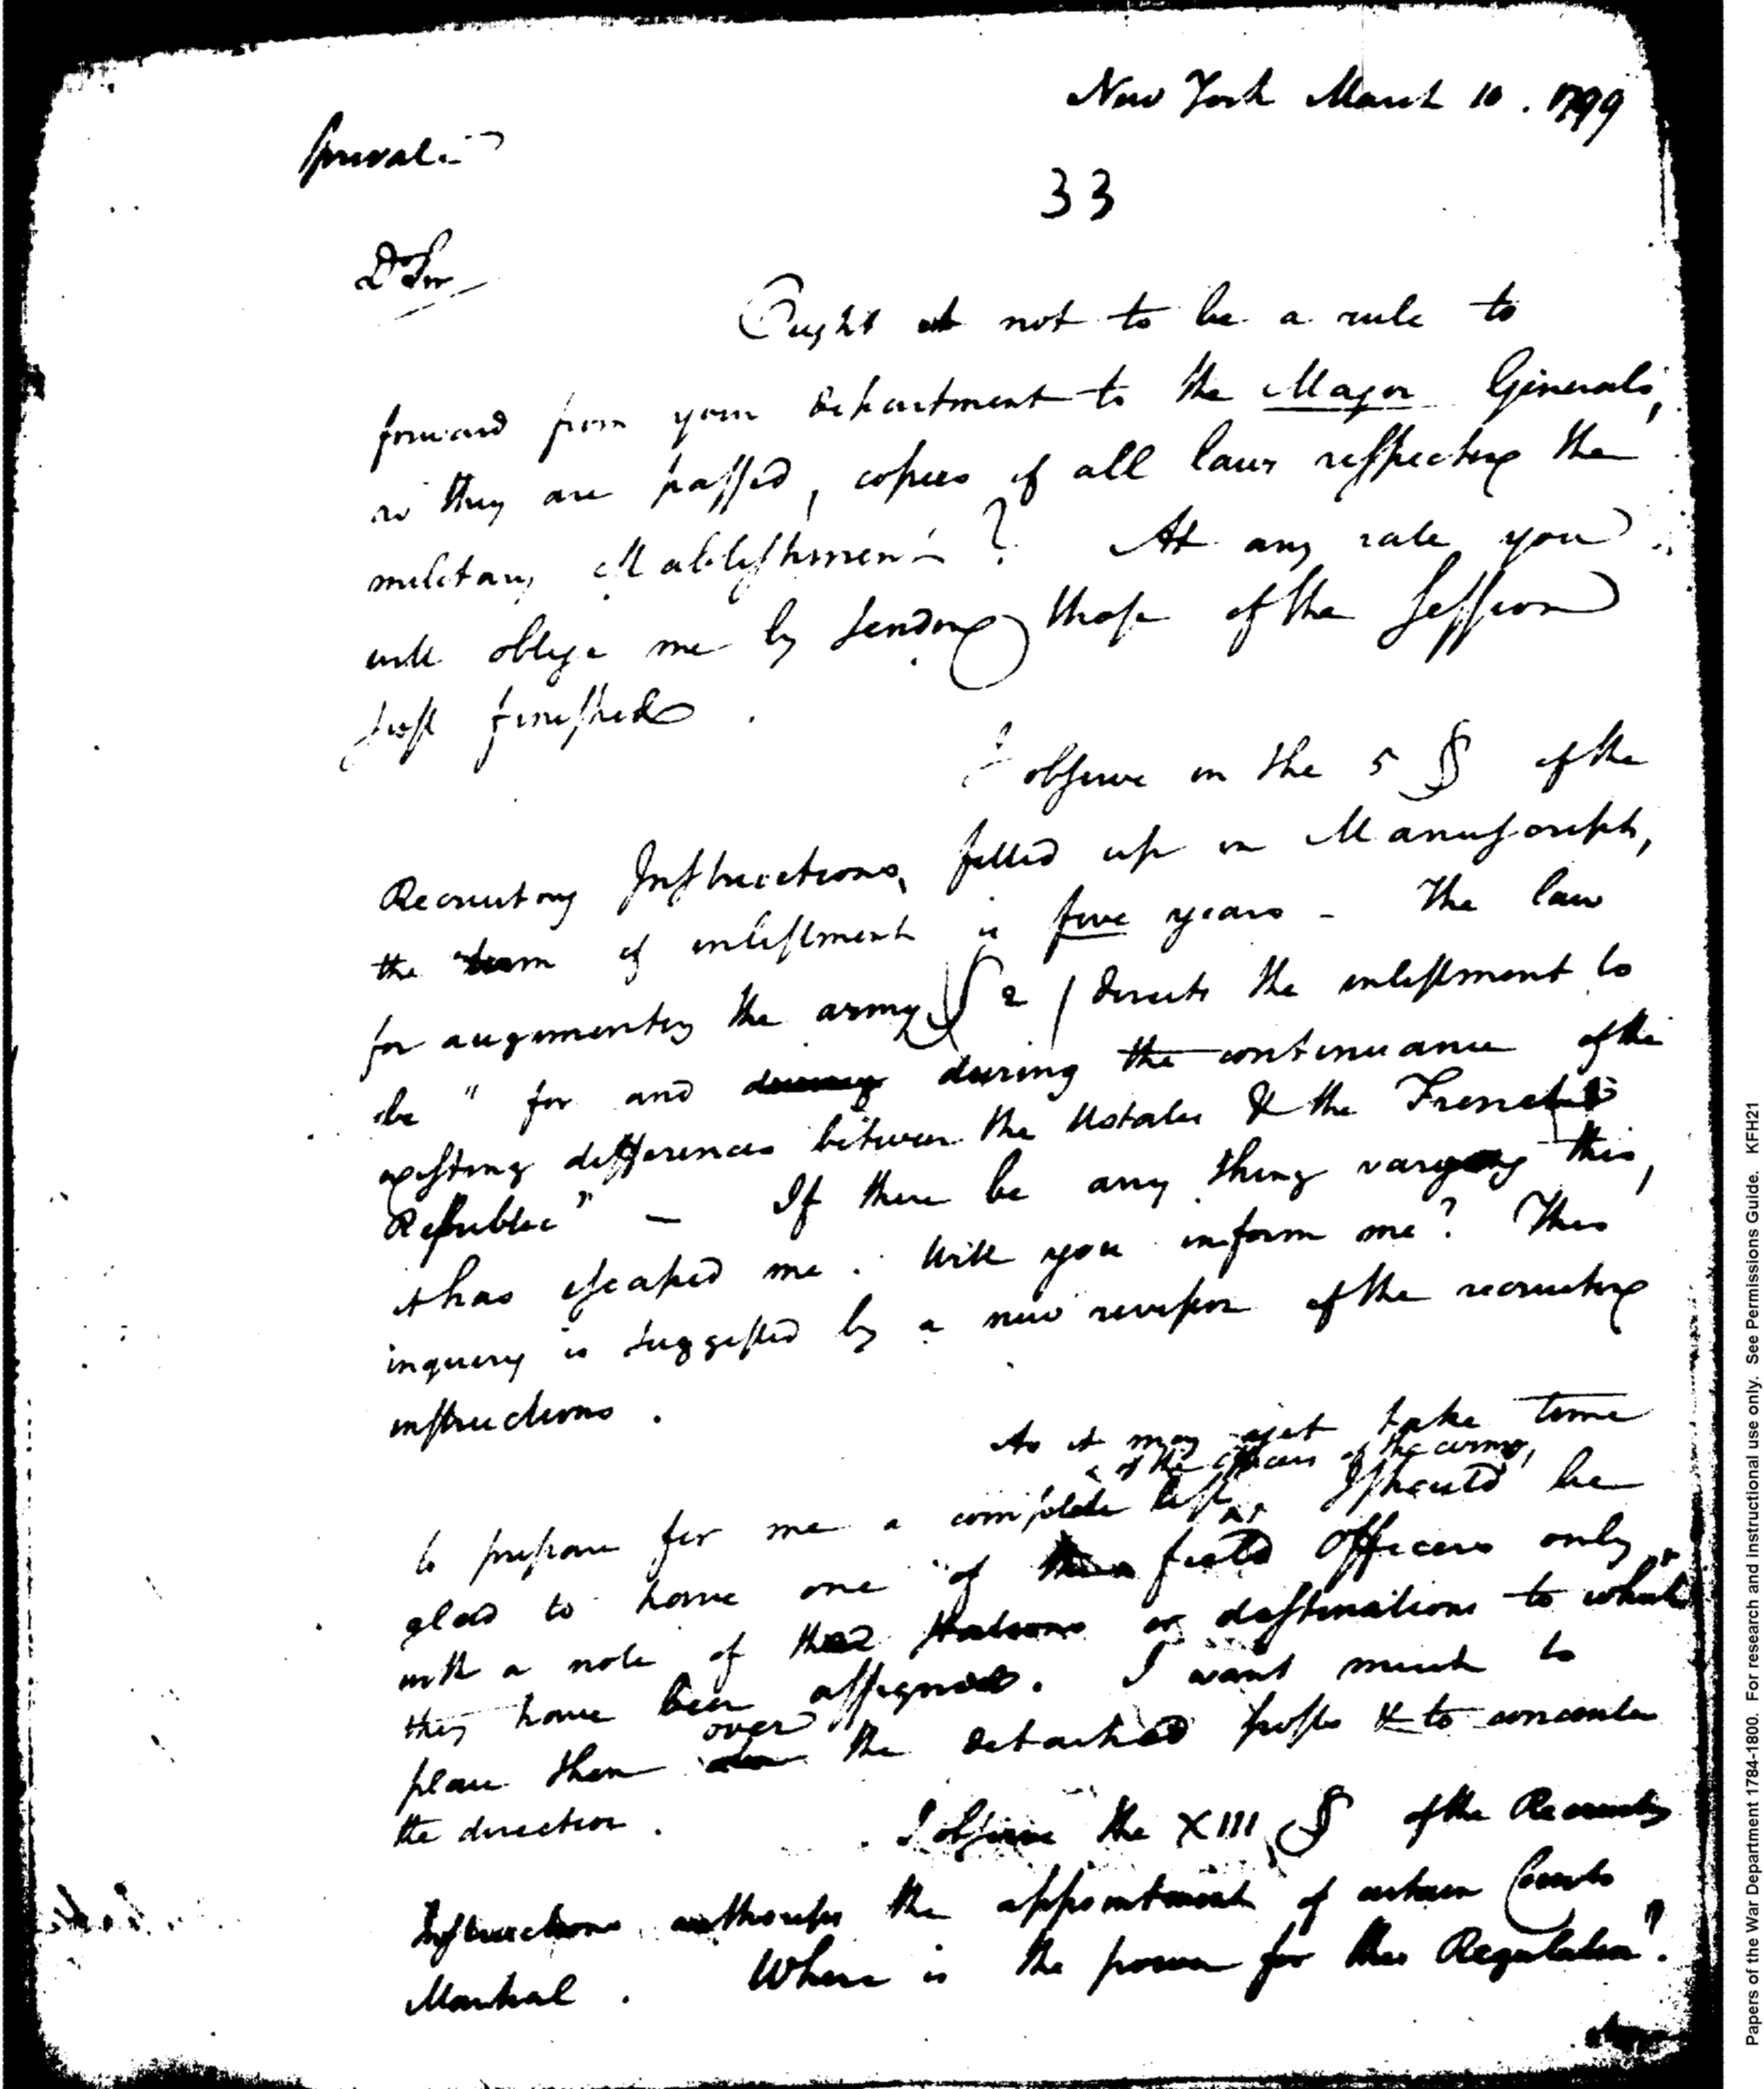 New York March 10. 1799
Private
33
Dr Sir
Ought it not to be a rule to
forward from your department to the Major Generals,
as they are passed, copies of all laws respecting the
military establishment? At any rate you
will oblige me by sending those of the Session
just finished.
I observe in the 5 § of the
Recruiting Instructions, filled up in Manuscript,
the term of enlistment is five years - The law
for augmenting the army § 2 / directs the enlistment to
be " for and during during the continuance of the
existing differences between the UStates & the French
Republic" — If there be any thing varying this,
it has escaped me. Will you inform me? This
inquiry is suggested by a new revision of the recruiting
instructions.
As it may yet take time
of the officers of the army,
to prepare for me a complete list I should be
glad to have one of field Officers only,
with a note of the stations or destinations to which
they have been assigned. I want much to
over
place them the detached posts & to
the direction.
I observe the XIII § of the Recruiting
Instructions authorises the appointment of certain Courts
Martial. Where is the power for this Regulation?
Papers of the War Department 1784-1800. For research and instructional use only. See Permissions Guide. KFH21